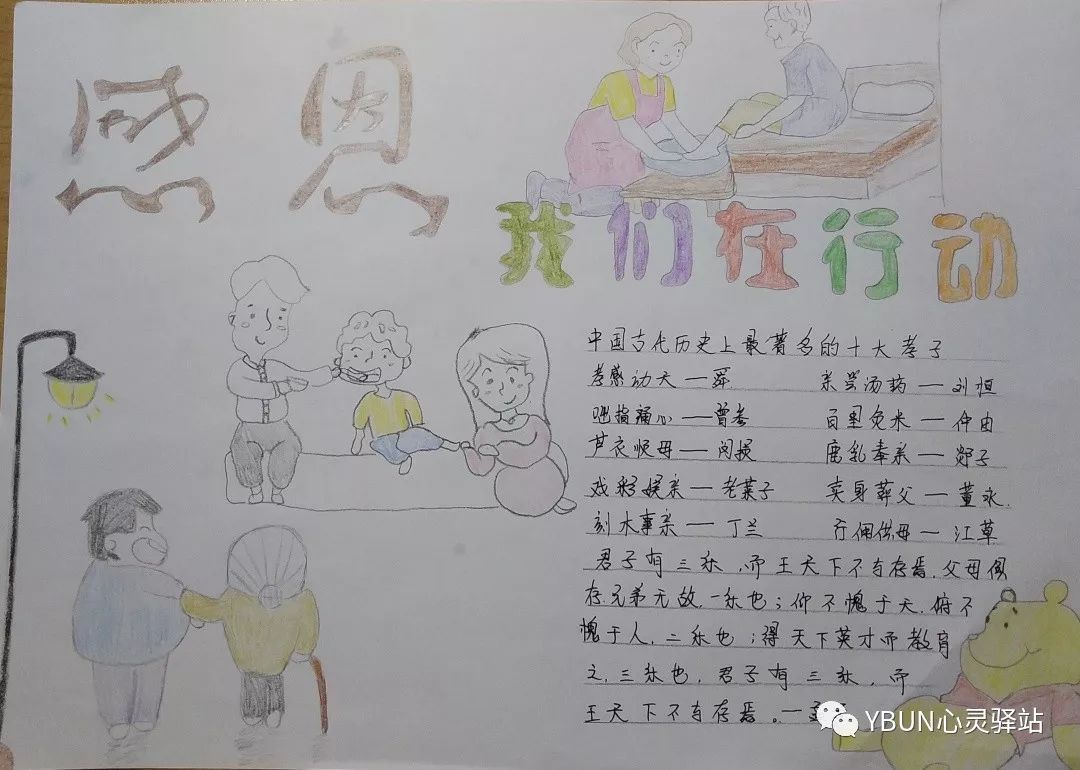 感恩
我们在行动
中国古代历史上最著名的十大孝子
孝感动天—舜 亲尝汤药—刘恒
啮指痛心—曾参 百里负米—仲由
芦衣顺母—闵损 鹿乳奉亲—郯子
戏彩娱亲—老莱子 卖身葬父—董永.
刻木事亲—丁兰 行佣供母—江革
君子有三乐,而王天下不与存焉.父母俱
存,兄弟无故,一乐也;仰不愧于天,俯不
愧于人,二乐也;得天下英才而教育
之,三乐也,君子有三乐,而
王天下不与存焉。—
YBUN心灵驿站